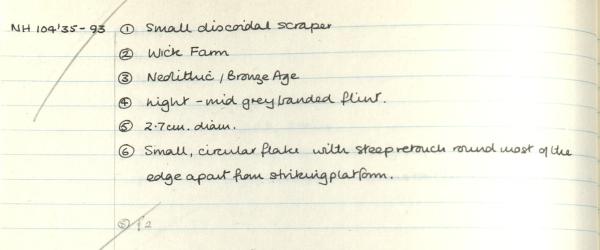 NH 104'35-93 ① Small discoidal scraper
② Wick Farm
③ Neolithic / Bronze Age
④ light - mid grey banded flint.
⑤ 2.7cm. diam.
⑥ Small, circular flake with steep retouch round most of the
edge apart from striking platform.